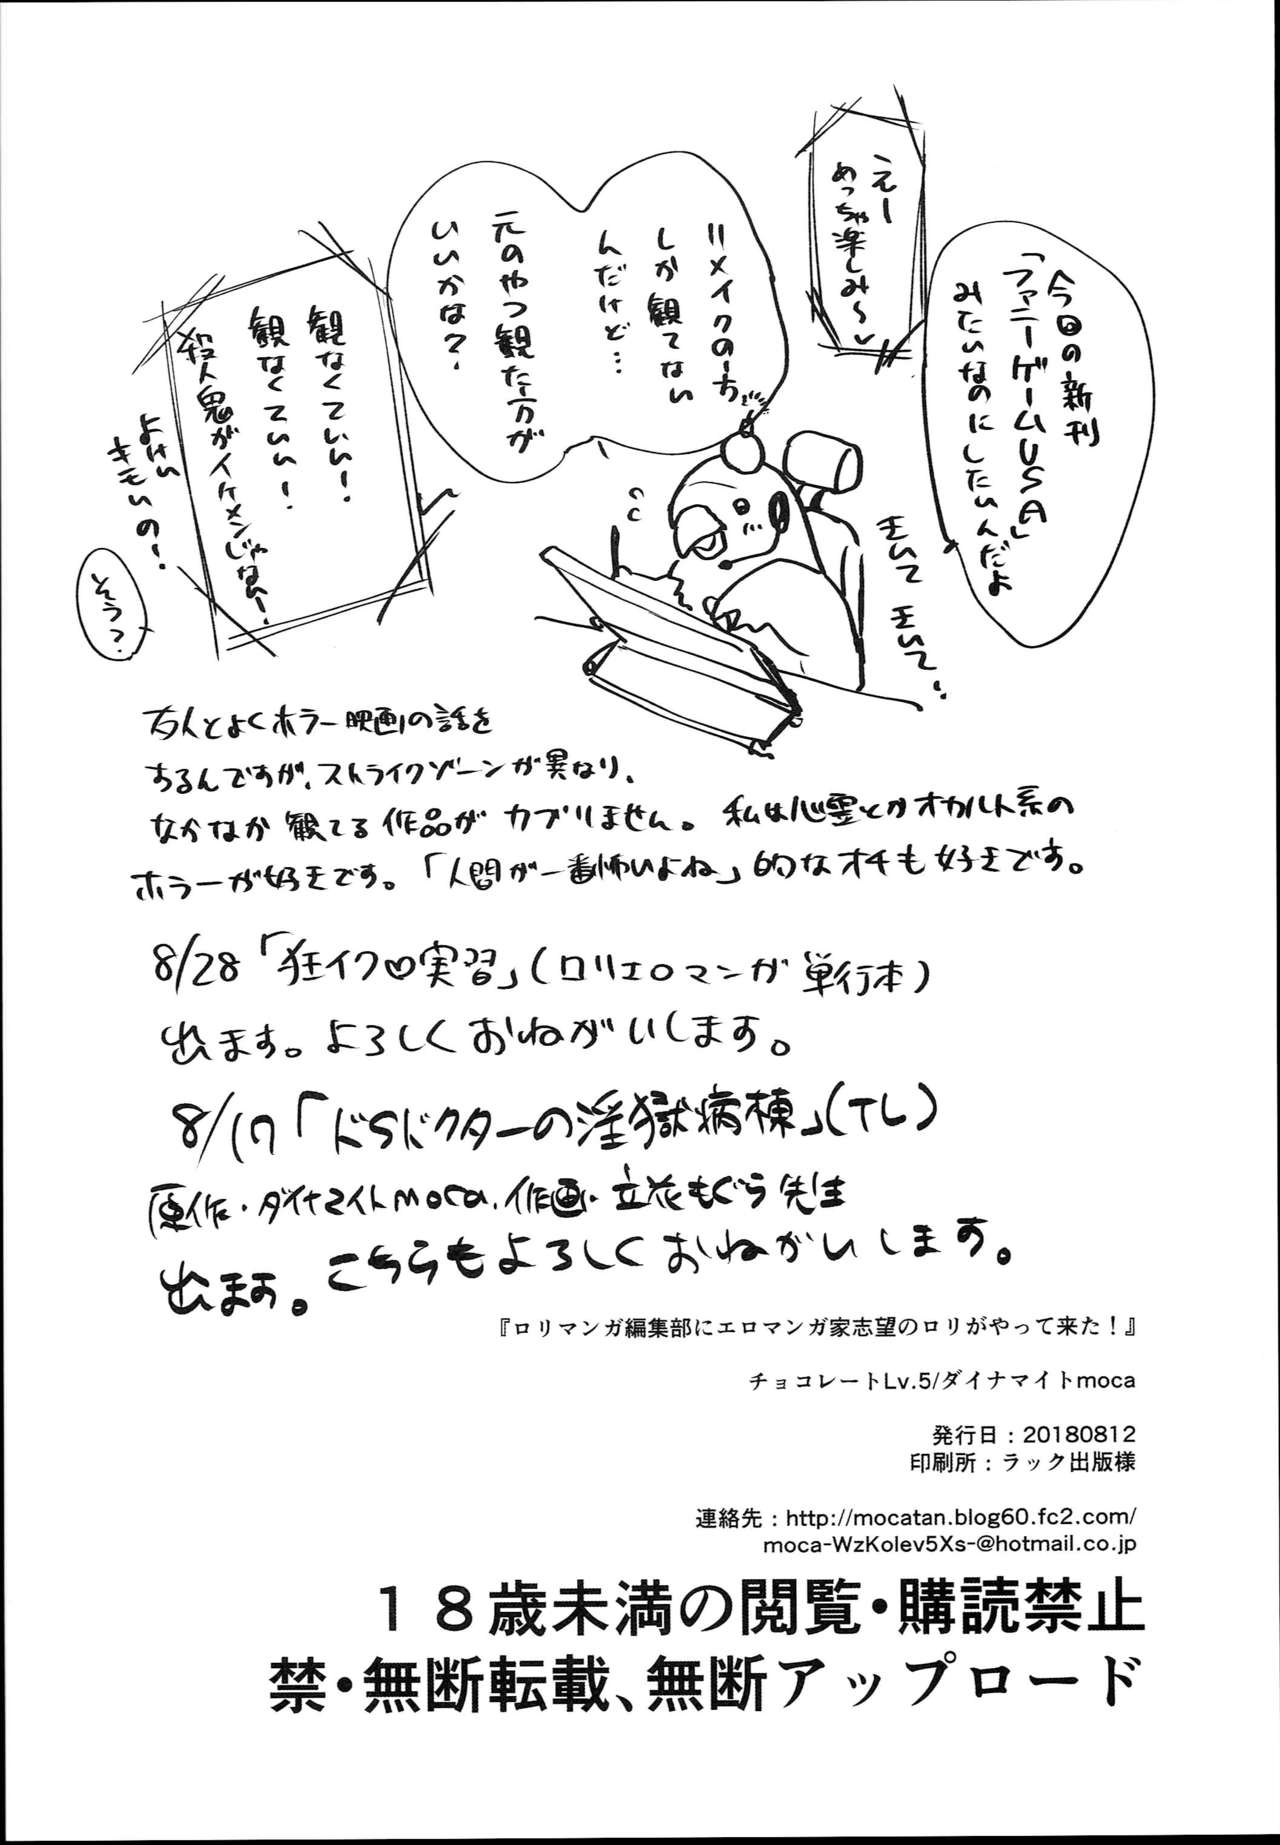 今回の新刊
「ファニーゲームUSA」
みたいなのにしたいんだよ
えー
めっちゃ楽しみ〜♡
リメイクの方
しか観てない
んだけど…
元のやつ観た方が
いいかな？
観なくていい！
観なくていい！
殺人鬼がイケメンじゃない！
よけい
キモいの！
そう？
友人とよくホラー映画の話を
するんですが、ストライクゾーンが異なり、
なかなか観てる作品がカブリません。私は心霊とかオカルト系の
ホラーが好きです。「人間が一番怖いよね」的なオチも好きです。
8/28「狂イク♡実習」(ロリエロマンガ単行本)
出ます。よろしくおねがいします。
8/17「ドSドクターの淫獄病棟」(TL)
原作・ダイナマイトmoca、作画・立花もぐら先生
出ます。こちらもよろしくおねがいします。
『ロリマンガ編集部にエロマンガ家志望のロリがやって来た！』
チョコレートLv.5/ダイナマイトmoca
発行日：20180812
印刷所：ラック出版様
連絡先：http://mocatan.blog60.fc2.com/
moca-WzKolev5Xs-@hotmail.co.jp
１８歳未満の閲覧・購読禁止
禁・無断転載、無断アップロード